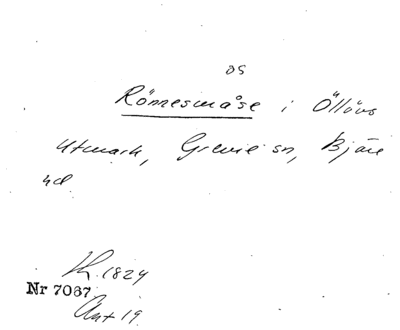 os
Römesmåse i Öllövs
Utmark, Grevie sn, Bjäre
hd
K. 1824
Nr 7067
Akt 19